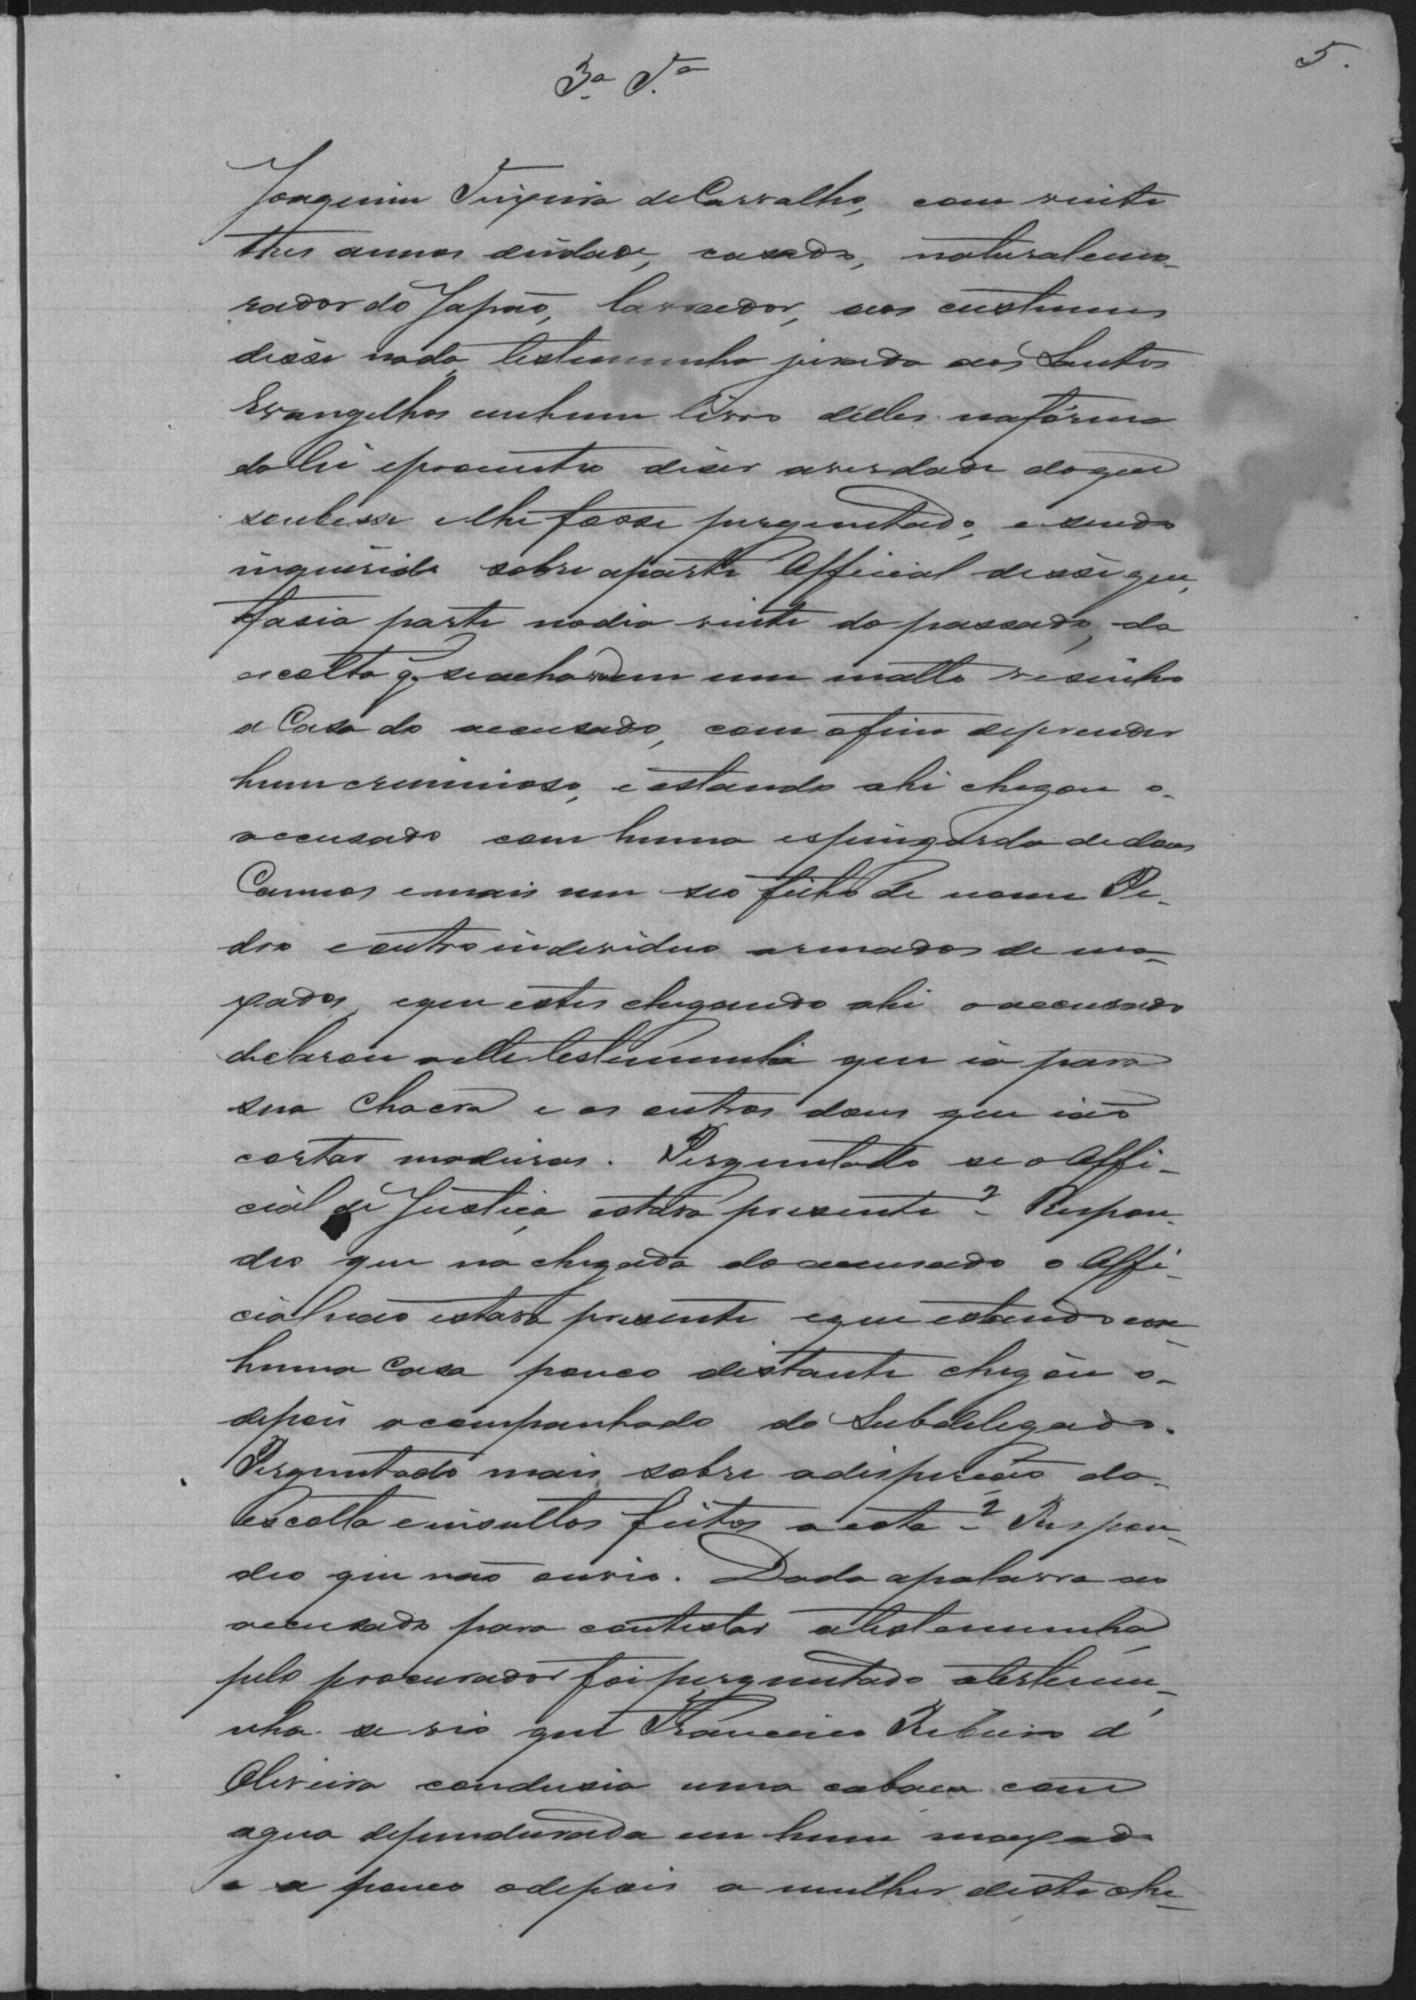 5.
3ª Tª
Joaquim Teixeira de Carvalho, com vinte
tres annos didade, casado, natural emo-
rador do Japão, lavrador, aos custumes
disse nada, testemunha jurada aos Santos
Evangelhos emhum livro delles naforma
dalei eprometeo diser averdade doque
soubesse elhe fosse perguntado, e sendo
inquirida sobre aparte Official disse que,
fasia parte nodia vinte do passado, da
escolta q. seachava em um matto vesinho
a Casa do accusado, com ofim deprender
hum criminoso, e estando ahi chegou o
accusado com huma espingarda de dous
Cannos emais um seo filho de nome Pe-
dro e outro individuo armados de ma-
xados, eque estes chegando ahi o accusado
declarou aelle testemunha que ia para
sua Chacra e os outros dous que ião
cortar madeiras. Perguntado se o Offi-
cial de Justiça estava presente? Respon-
deo que na chegada do accusado o Offi-
cial não estava presente eque estando em
huma Casa pouco distante chegou o-
depois acompanhado do Subdelegado.
Perguntado mais sobre adisperção da
escolta einsultos feitos a esta? Respon-
deo que não ouvio. Dada apalavra ao
accusado para contestar atestemunha,
pelo procurador foi perguntado atestemu-
nha se vio que Francisco Ribeiro d'
Oliveira condusia uma cabaca com
agua dependurada em hum maxado
e a pouco adepois a mulher deste che-